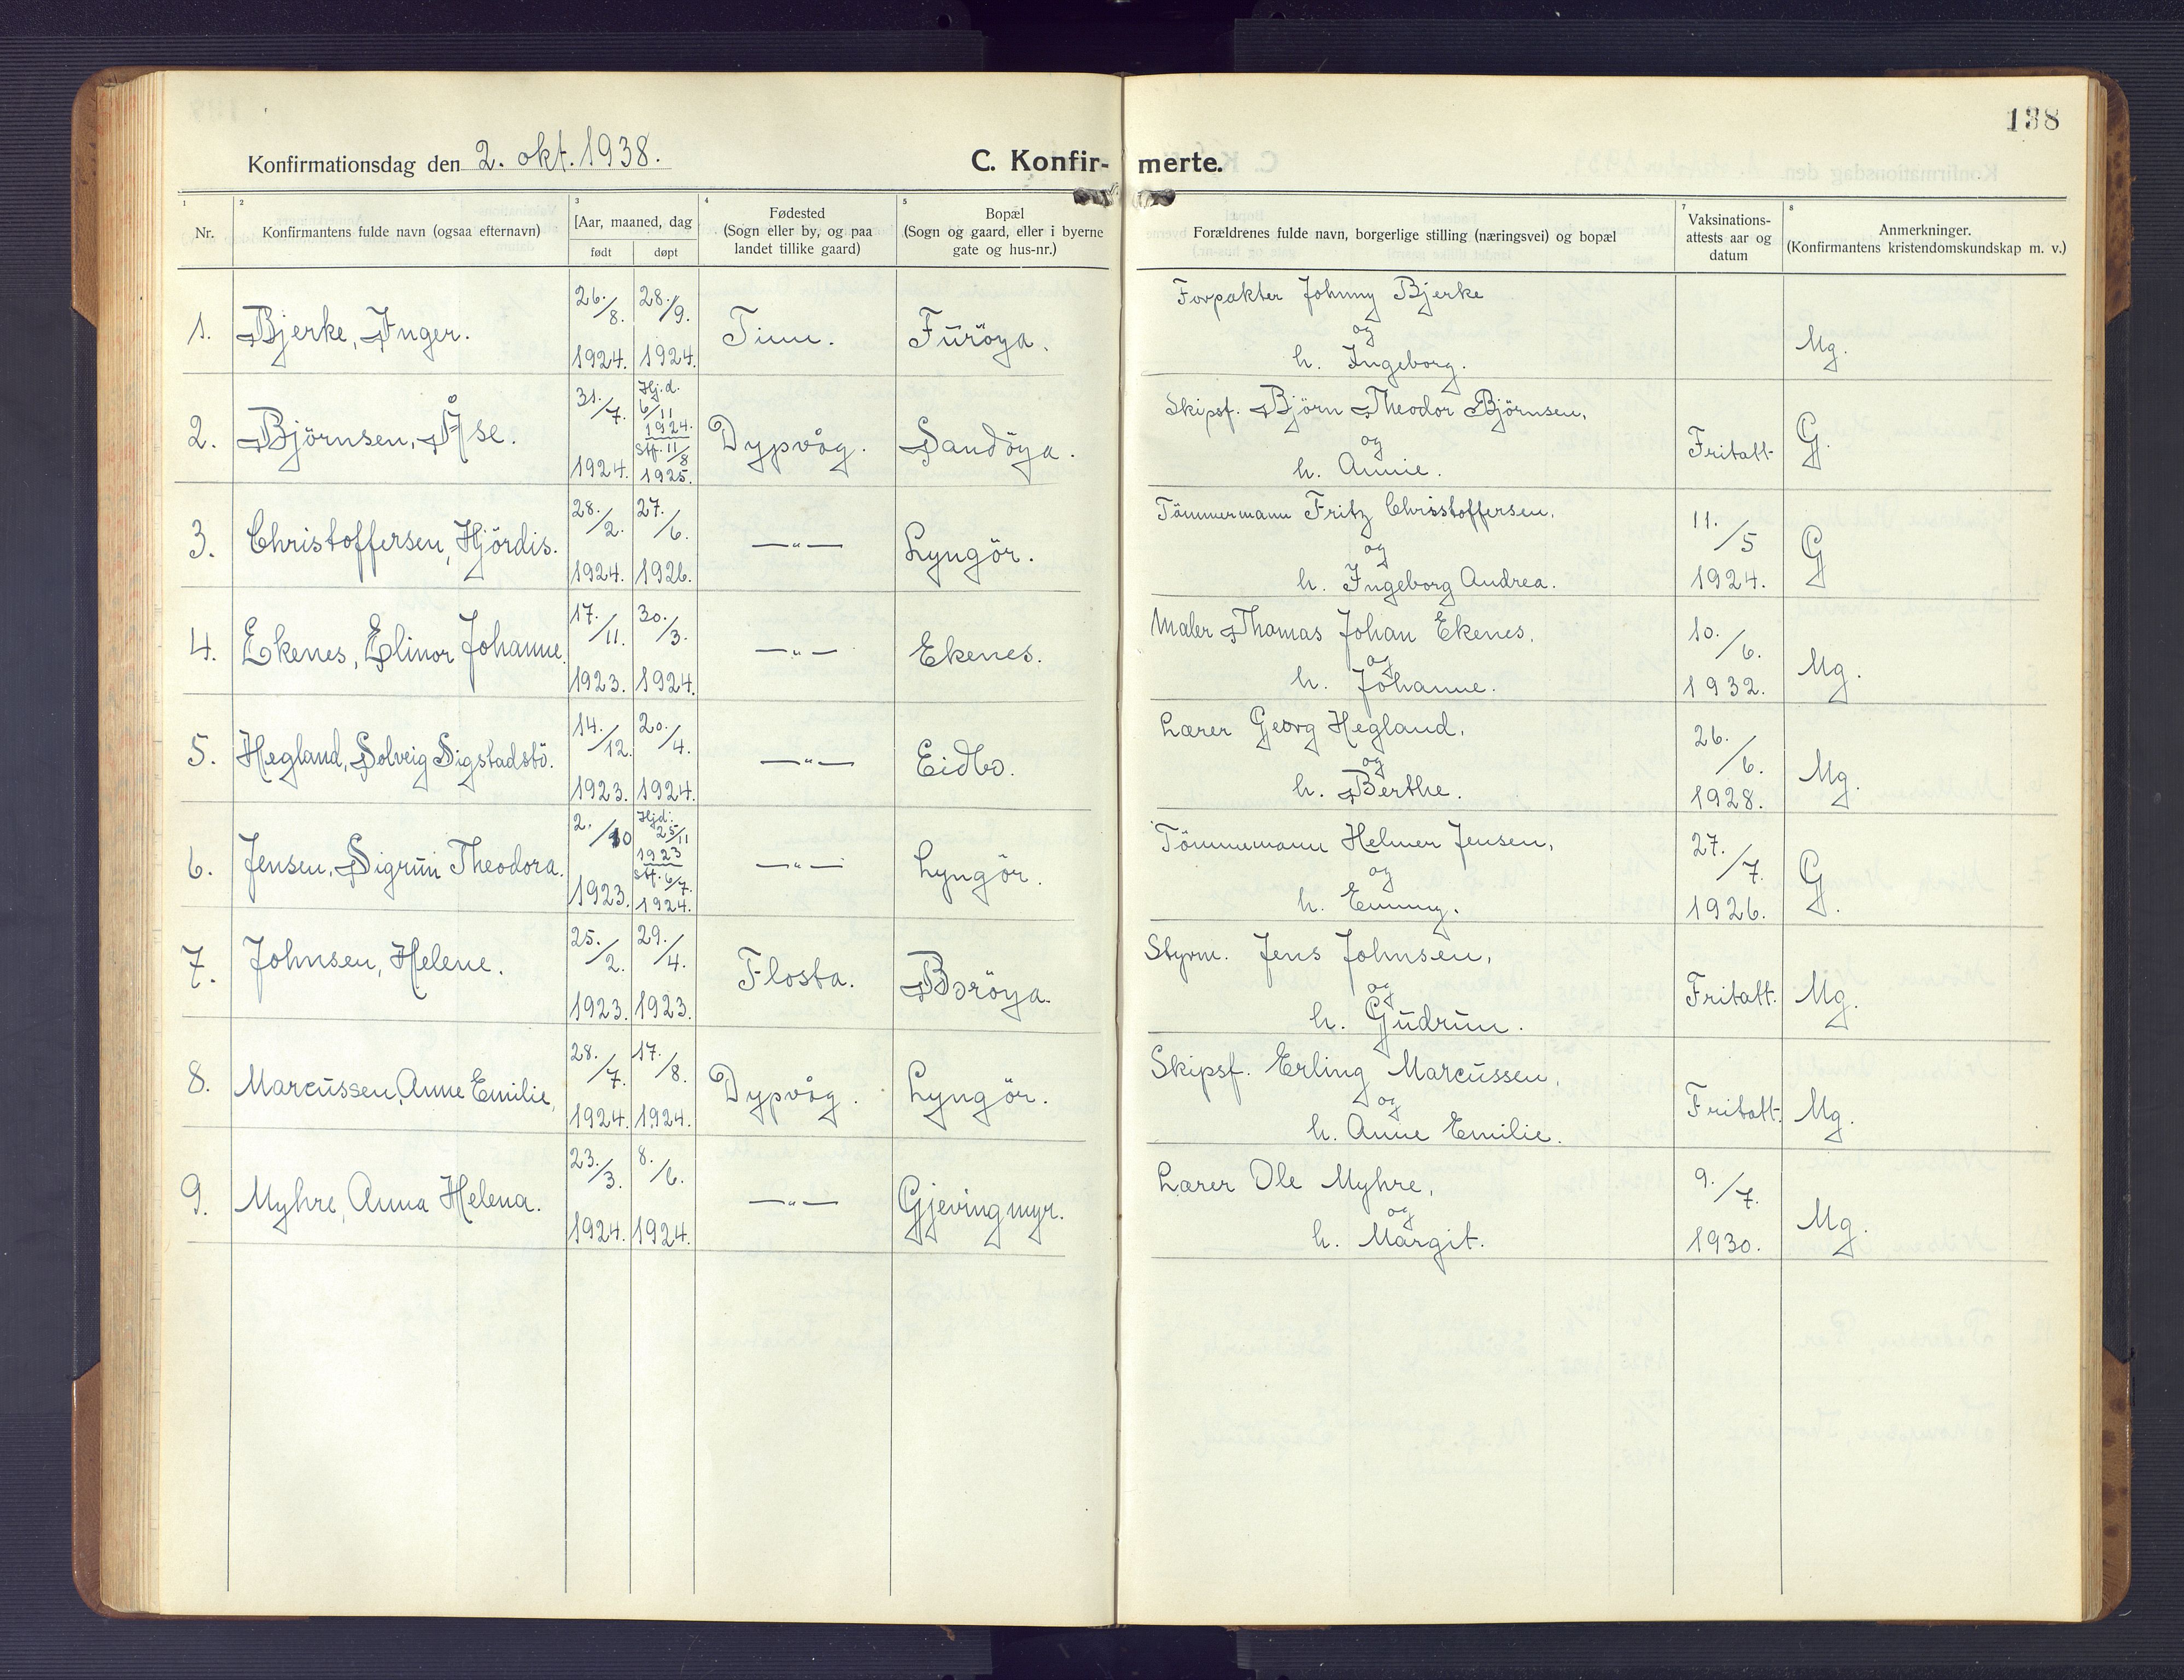 138
Konfirmationsdag den 2. okt. 1938.
C. Konfir- merte.
1 2 3 4 5 7 8
Nr.
Konfirmantens fulde navn (ogsaa efternavn)
[Aar, maaned, dag
født døpt
Fødested
(Sogn eller by, og paa
landet tillike gaard)
Bopæl
(Sogn og gaard, eller i byerne
gate og hus-nr.)
Forældrenes fulde navn, borgerlige stilling (næringsvei) og bopæl
Vaksinations-
attests aar og
datum
Anmerkninger.
(Konfirmantens kristendomskundskap m. v.)
1. Bjerke, Inger. 26./8. 1924. 28./9. 1924. Time. Furöya.
Forpakter Johnny Bjerke
og
h. Ingeborg.
Mg.
2. Björnsen, Åse. 31./7. 1924. Hj.d. 6/11 1924. Stf. 11/8 1925. Dypvåg. Sandöya.
Skipsf. Björn Theodor Björnsen,
og
h. Annie.
Fritatt G.
3. Christoffersen, Hjördis. 28./2. 1924. 27./6. 1926. —"— Lyngör.
Tömmermann Fritz Christoffersen,
og
h. Ingeborg Andrea.
11./5 1924. G
4. Ekenes, Elinor Johanne. 17./11. 1923. 30./3. 1924. —"— Ekenes.
Maler Thomas Johan Ekenes,
og
h. Johanne.
10./6. 1932. Mg.
5. Hegland, Solveig Sigstadstö. 14./12. 1923. 20./4. 1924. —"— Eidbo.
Lærer Georg Hegland,
og
h. Berthe.
26./6. 1928. Mg.
6. Jensen, Sigrun Theodora. 2./10 1923. Hjd: 25/11 1923 Stf. 6/7. 1924. —"— Lyngör.
Tömmemann Helmer Jensen,
og
h. Emmy.
27./7. 1926. G.
7. Johnsen, Helene. 25./2. 1923. 29./4. 1923. Flosta. Boröya.
Styrm. Jens Johnsen,
og
h. Gudrun.
Fritatt. Mg.
8. Marcussen, Anne Emilie, 28./7. 1924. 17./8. 1924. Dypvåg. Lyngör.
Skipsf. Erling Marcussen,
og
h. Anne Emilie.
Fritatt. Mg.
9. Myhre, Anna Helena. 23./3. 1924. 8./6. 1924. —"— Gjevingmyr.
Lærer Ole Myhre,
og
h. Margit.
9./7. 1930. Mg.